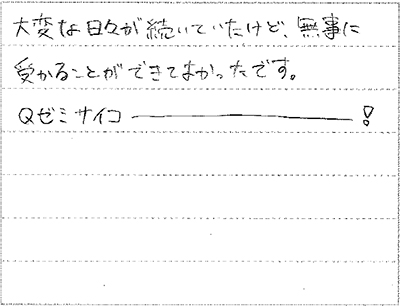 大変な日々が続いていたけど、無事に
受かることができてよかったです。
Qゼミサイコ――――――!